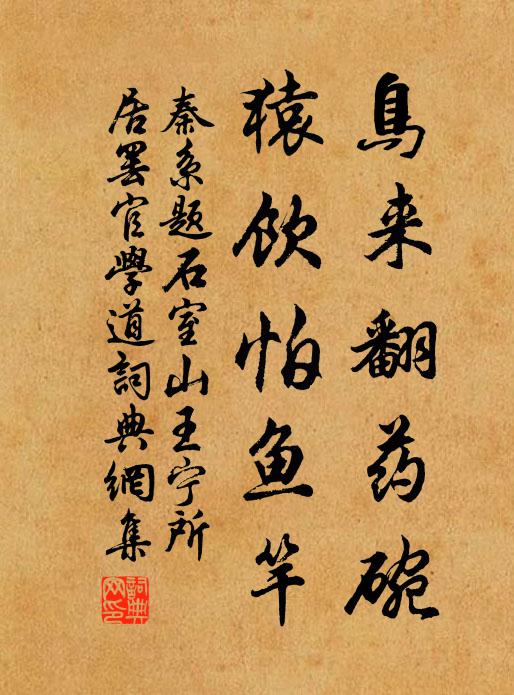 鸟来翻药碗
猿饮怕鱼竿
秦系题石室山王宁所
居罢官學道詞典網集
詞典網印